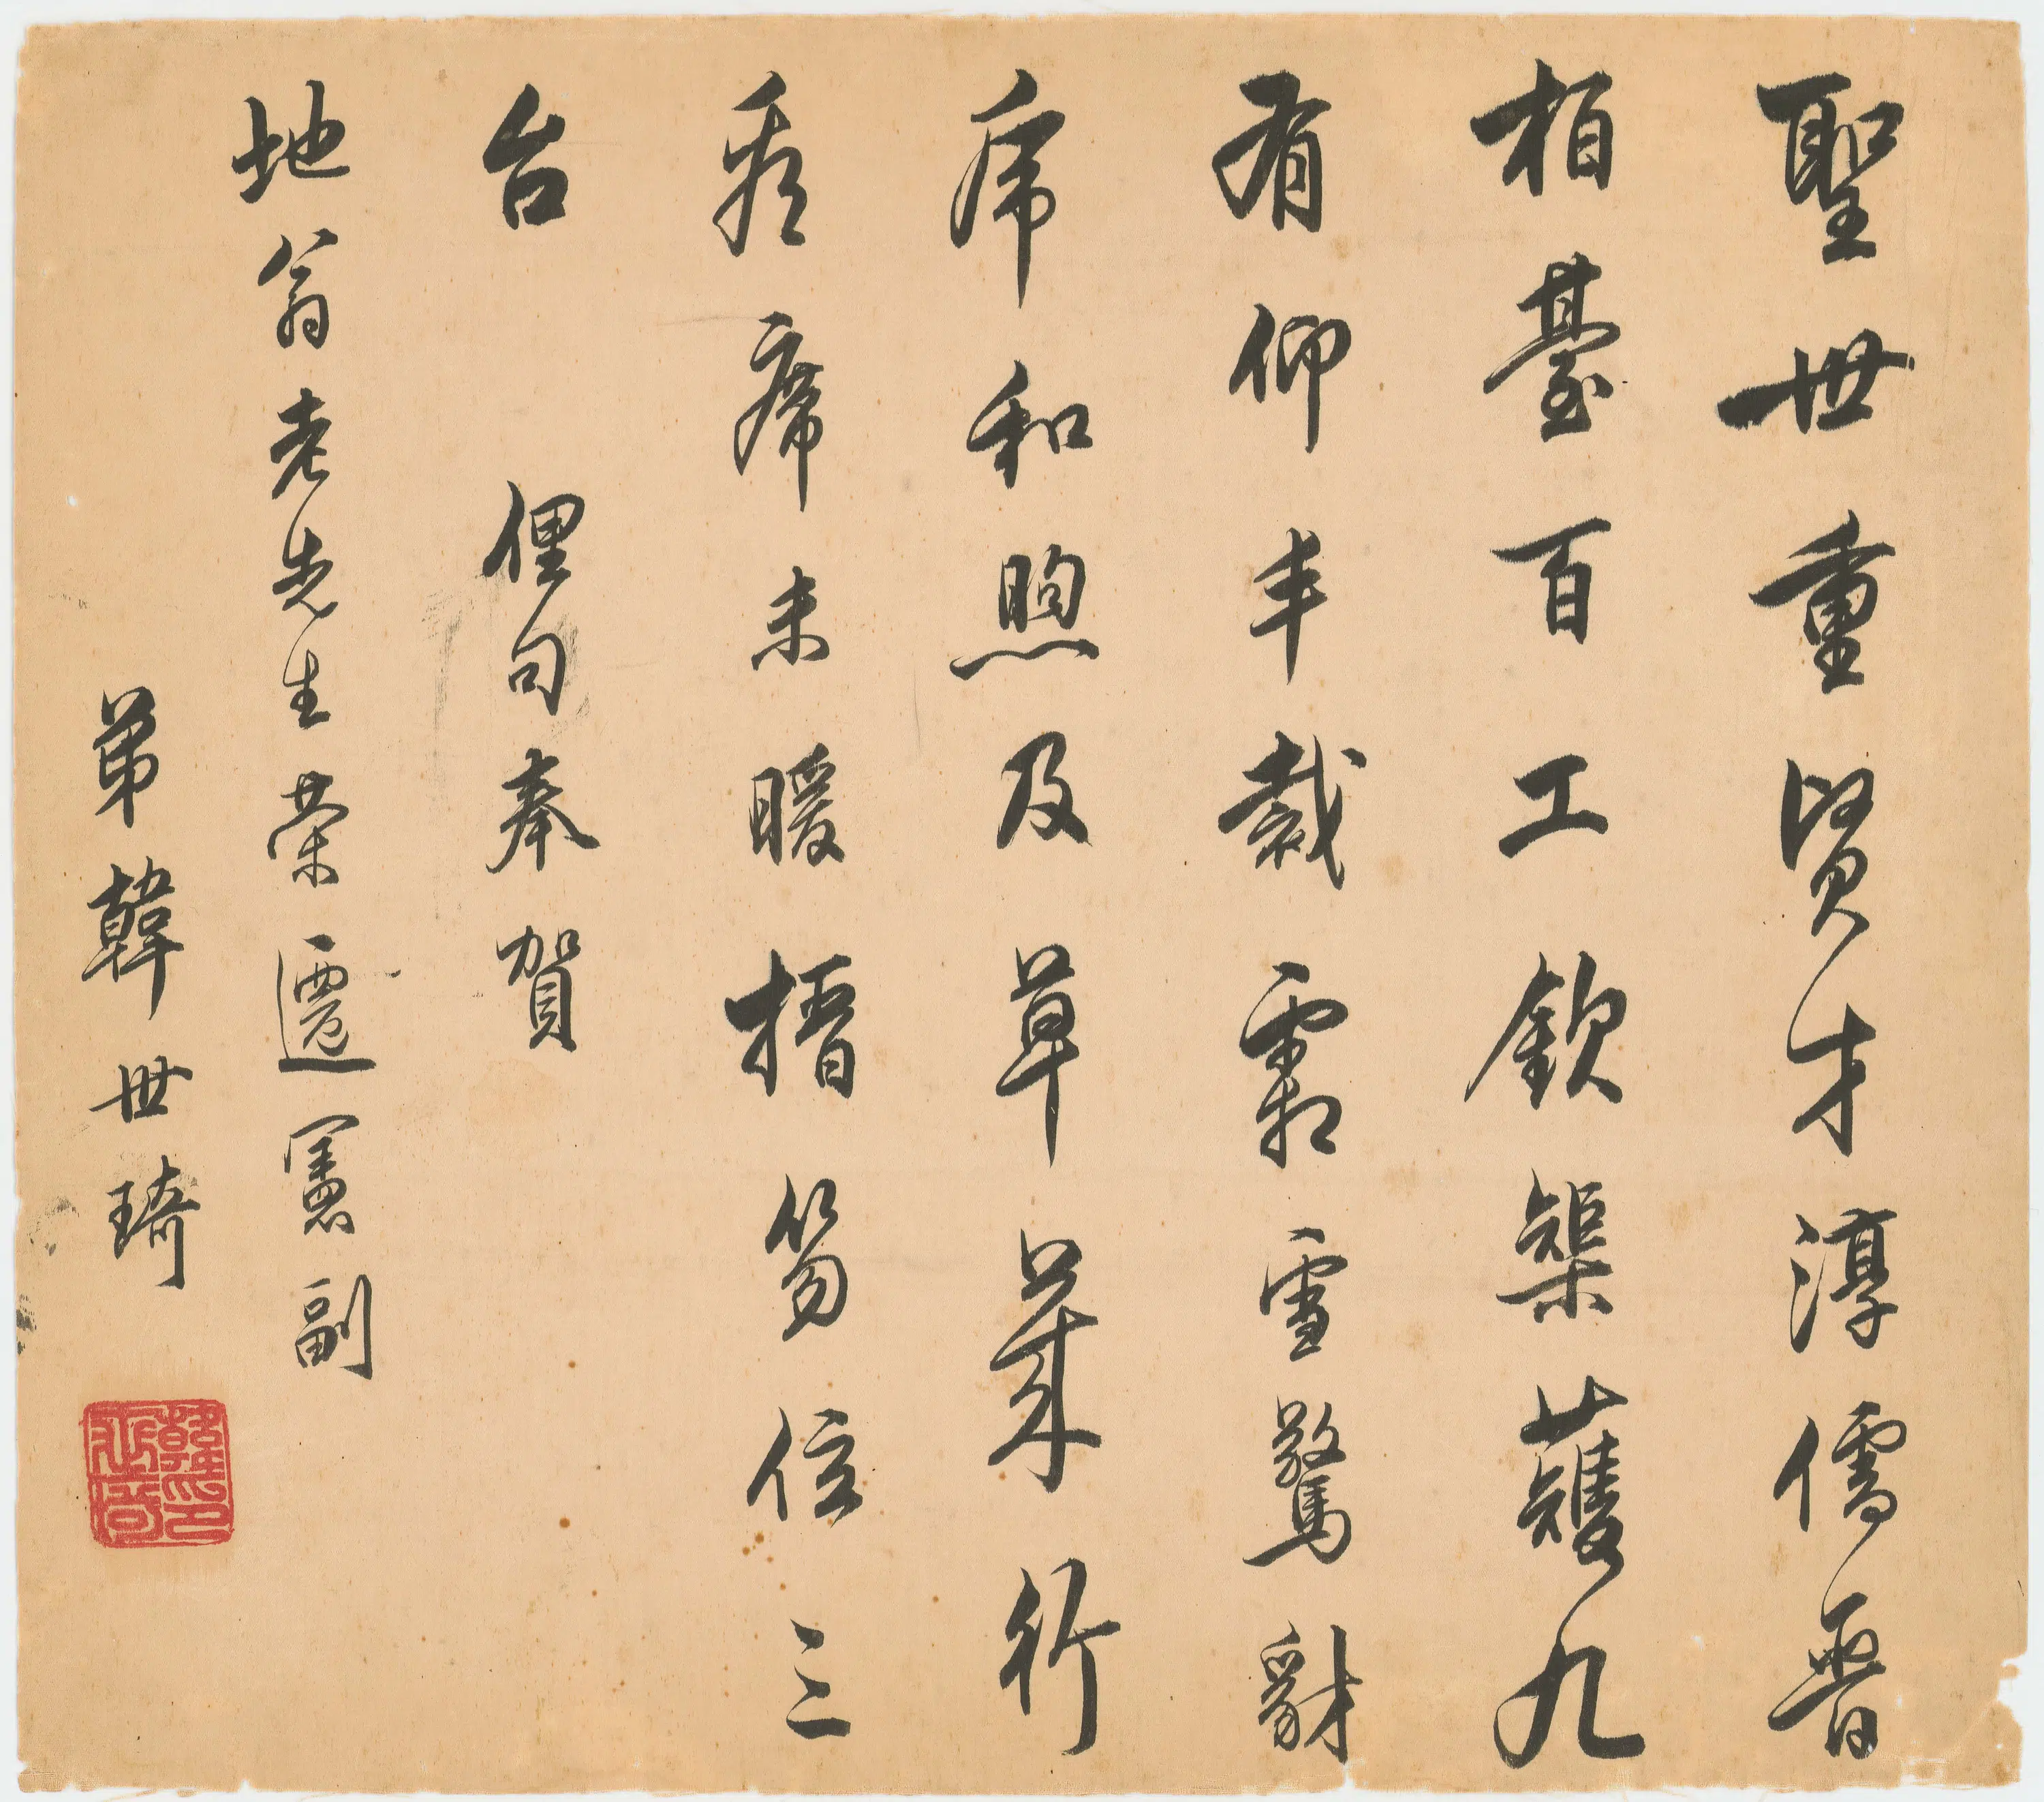 聖世重賢才淳儒晉
柏臺百工欽榘矱九
有仰丰裁霜雪驚豺
虎和煦及草萊行
看席未暖搢笏位三
台 俚句奉賀
地翁老先生榮遷憲副
弟韓世琦